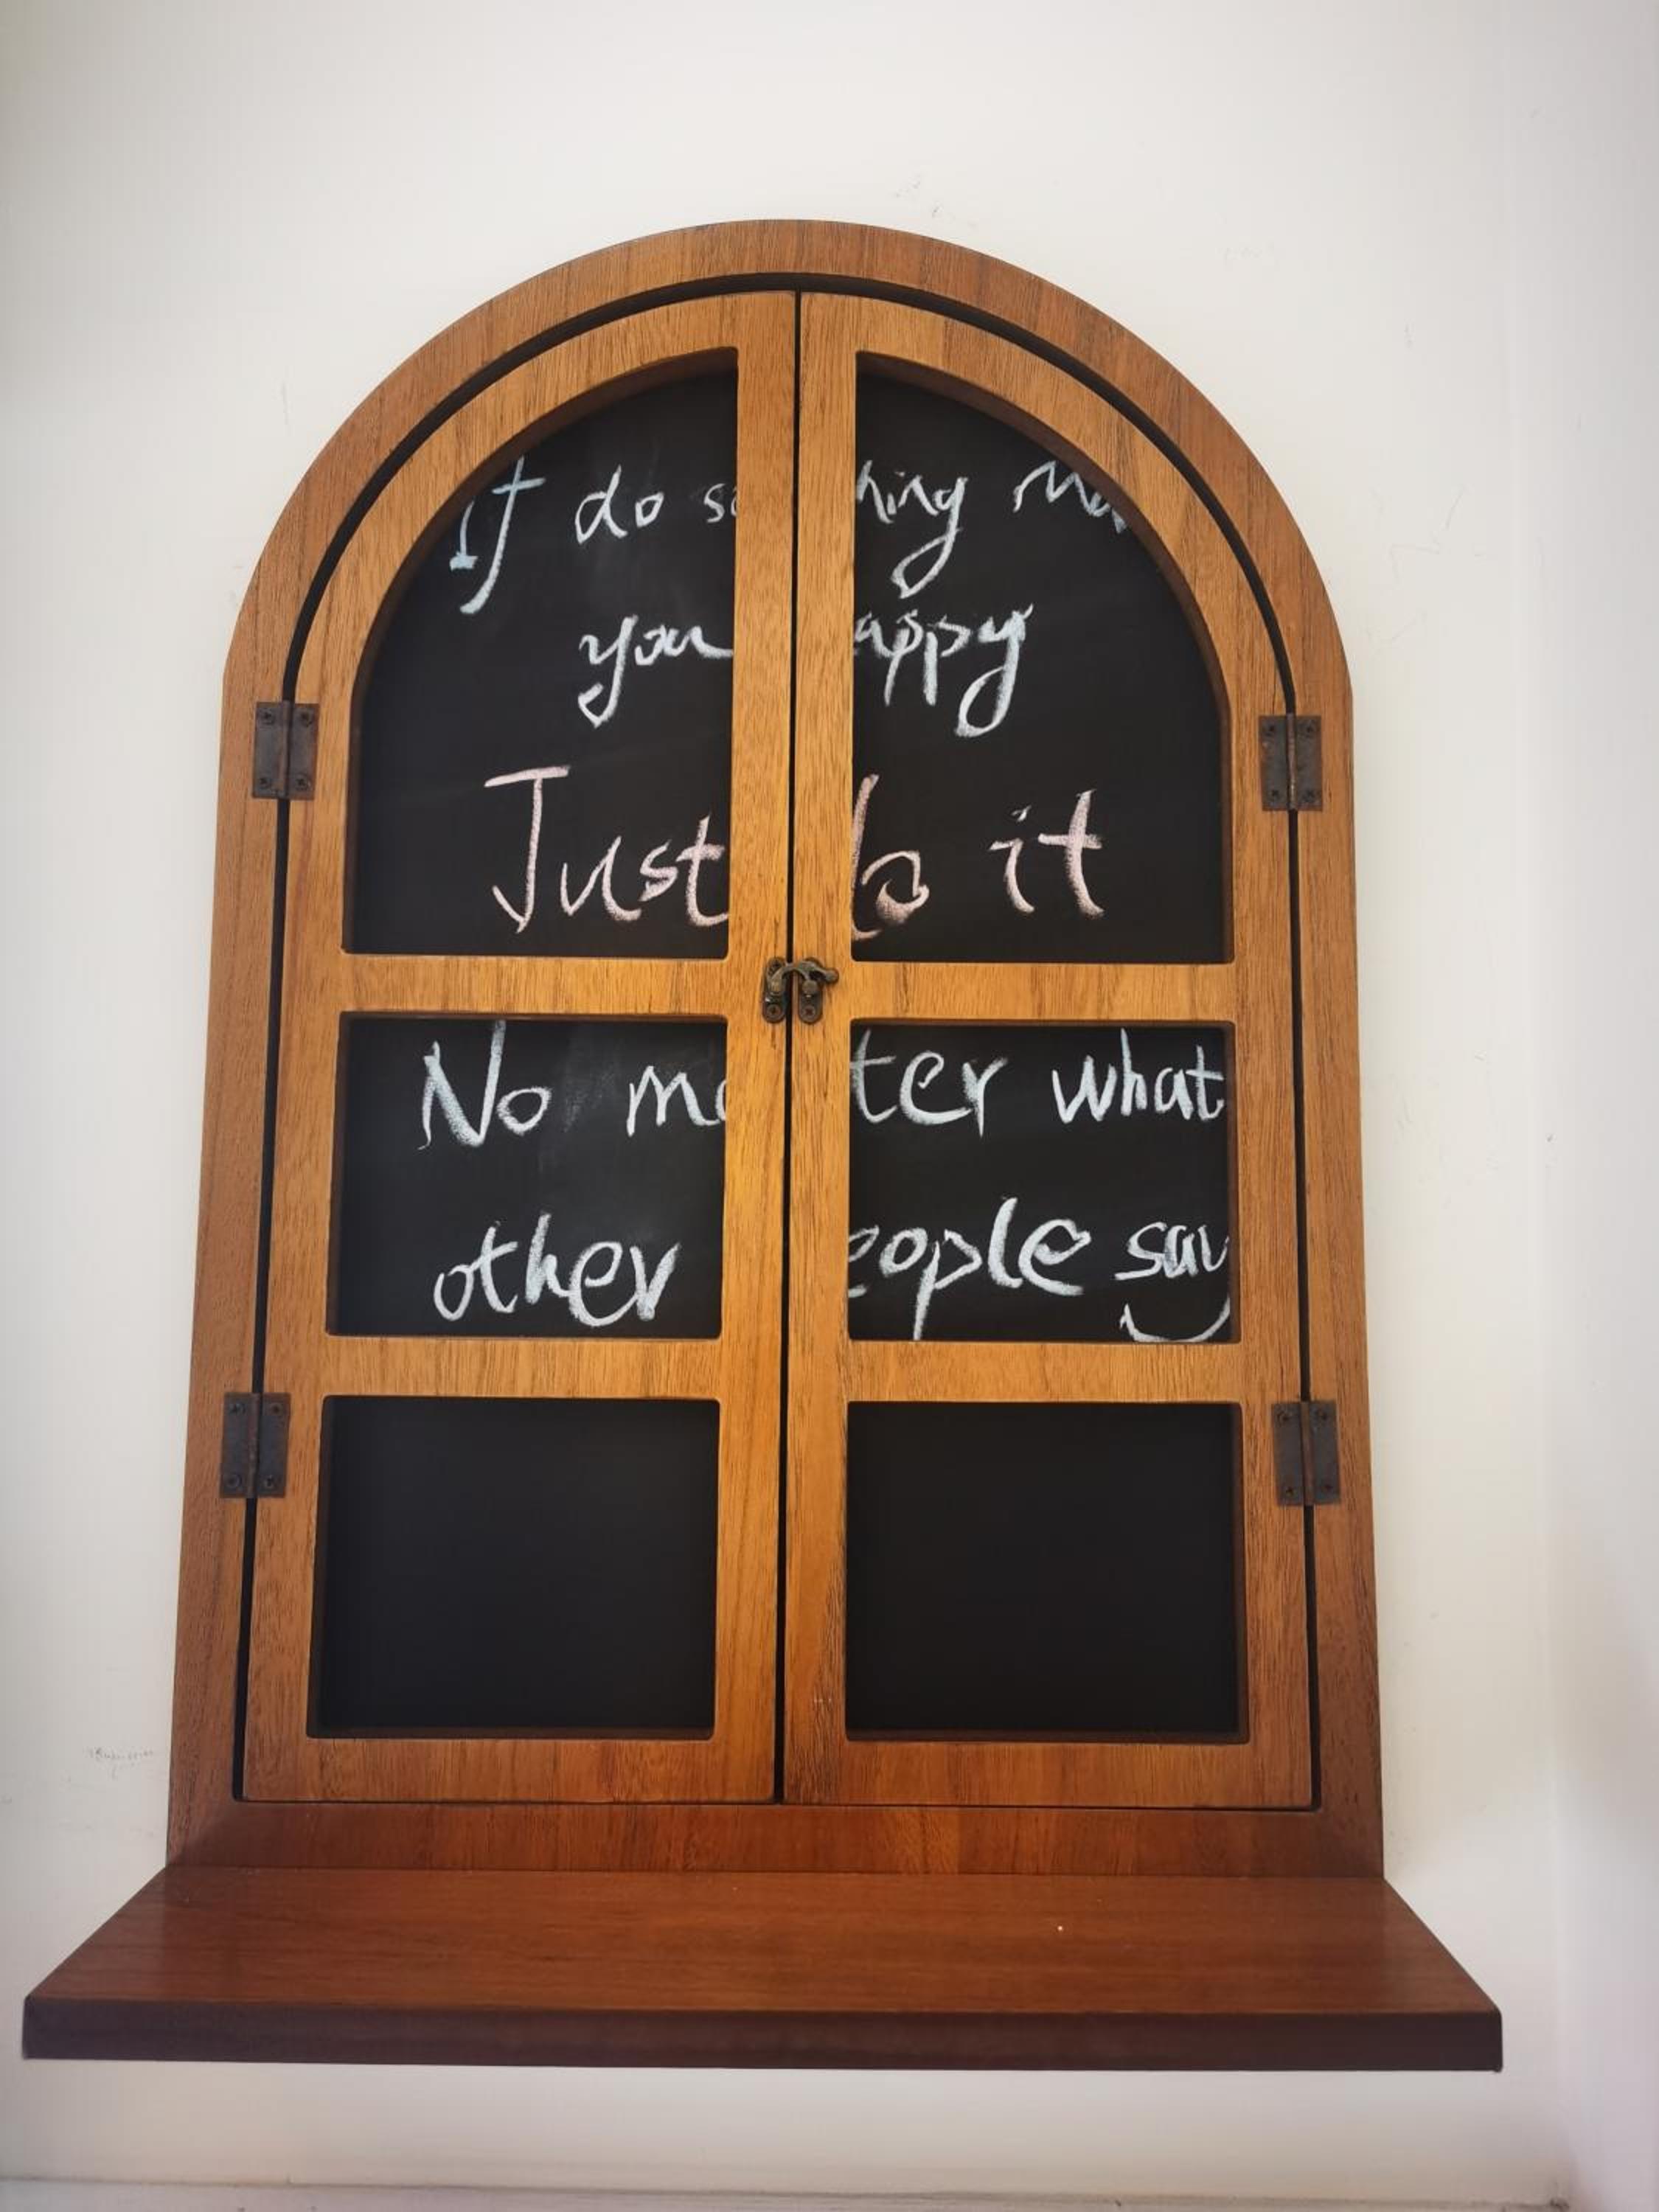 If do so hing Ma
you appy
Just do it
No ma ter what
other eople say